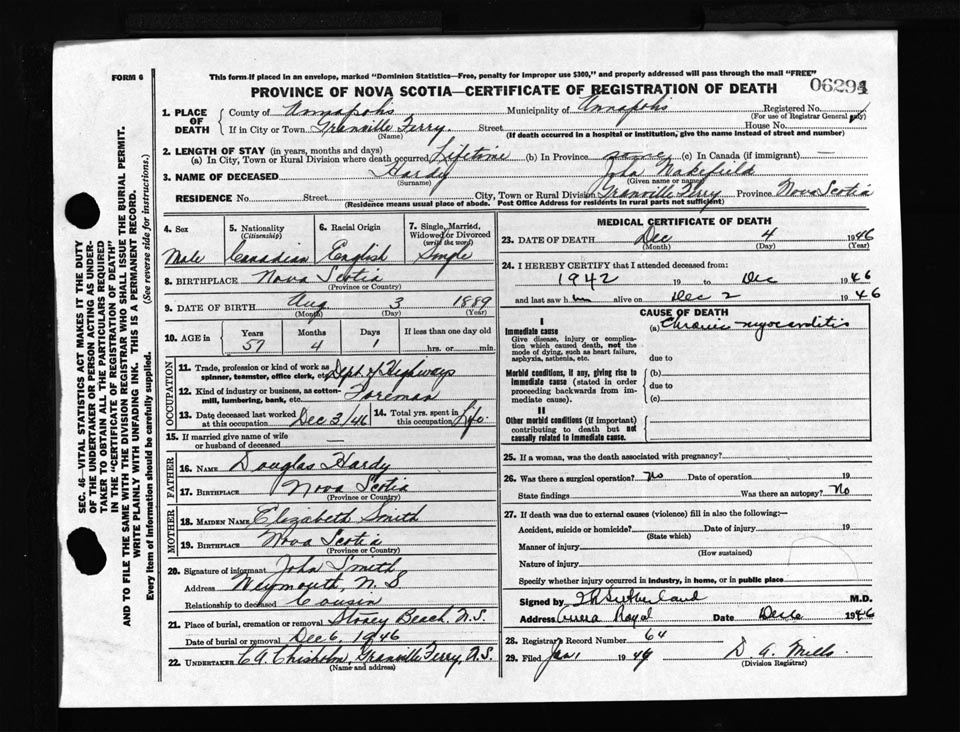 FORM 6
This form if placed in an envelope, marked "Dominion Statistics—Free, penalty for improper use $300," and properly addressed will pass through the mail "FREE"
PROVINCE OF NOVA SCOTIA—CERTIFICATE OF REGISTRATION OF DEATH
06294
SEC. 46—VITAL STATISTICS ACT MAKES IT THE DUTY
OF THE UNDERTAKER OR PERSON ACTING AS UNDER-
TAKER TO OBTAIN ALL THE PARTICULARS REQUIRED
IN THE "CERTIFICATE OF REGISTRATION OF DEATH"
AND TO FILE THE SAME WITH THE DIVISION REGISTRAR WHO SHALL ISSUE THE BURIAL PERMIT.
WRITE PLAINLY WITH UNFADING INK. THIS IS A PERMANENT RECORD.
Every item of Information should be carefully supplied. (See reverse side for instructions.)
1. PLACE OF DEATH
County of Annapolis Municipality of Annapolis Registered No.
(For use of Registrar General only)
If in City or Town Granville Ferry. Street House No.
(Name) (If death occurred in a hospital or institution, give the name instead of street and number)
2. LENGTH OF STAY (in years, months and days)
(a) In City, Town or Rural Division where death occurred Lifetime (b) In Province (c) In Canada (if immigrant) —
3. NAME OF DECEASED Hardy John Wakefield
(Surname) (Given name or names)
RESIDENCE No. Street City, Town or Rural Division Granville Ferry Province Nova Scotia
(Residence means usual place of abode. Post Office Address for residents in rural parts not sufficient)
4. Sex
Male
5. Nationality
(Citizenship)
Canadian
6. Racial Origin
English
7. Single, Married,
Widowed or Divorced
(write the word)
Single
8. BIRTHPLACE Nova Scotia
(Province or Country)
9. DATE OF BIRTH Aug 3 1889
(Month) (Day) (Year)
10. AGE in
Years Months Days If less than one day old
57 4 1 hrs. or min.
OCCUPATION
11. Trade, profession or kind of work as
spinner, teamster, office clerk, etc. Dept of Highways
12. Kind of industry or business, as cotton-
mill, lumbering, bank, etc. Foreman
13. Date deceased last worked
at this occupation Dec 3/46
14. Total yrs. spent in
this occupation Life
15. If married give name of wife
or husband of deceased —
FATHER
16. NAME Douglas Hardy
17. BIRTHPLACE Nova Scotia
(Province or Country)
MOTHER
18. MAIDEN NAME Elizabeth Smith
19. BIRTHPLACE Nova Scotia
(Province or Country)
20. Signature of informant John Smith
Address Weymouth, N. S
Relationship to deceased Cousin
21. Place of burial, cremation or removal Stoney Beach, N.S.
Date of burial or removal Dec 6, 1946
22. UNDERTAKER C A. Chisholm, Granville Ferry, N.S.
(Name and address)
MEDICAL CERTIFICATE OF DEATH
23. DATE OF DEATH Dec 4 1946
(Month) (Day) (Year)
24. I HEREBY CERTIFY that I attended deceased from:
1942 19 to Dec 1946
and last saw him alive on Dec 2 1946
CAUSE OF DEATH
I
Immediate cause
Give disease, injury or complica-
tion which caused death, not the
mode of dying, such as heart failure,
asphyxia, asthenia, etc.
(a) Chronic myocarditis
due to
Morbid conditions, if any, giving rise to
immediate cause (stated in order
proceeding backwards from im-
mediate cause).
(b)
due to
(c)
II
Other morbid conditions (if important)
contributing to death but not
causally related to immediate cause.
25. If a woman, was the death associated with pregnancy?
26. Was there a surgical operation? No Date of operation 19
State findings Was there an autopsy? No
27. If death was due to external causes (violence) fill in also the following:—
Accident, suicide or homicide? Date of injury 19
(State which)
Manner of injury
(How sustained)
Nature of injury
Specify whether injury occurred in industry, in home, or in public place
Signed by Sutherland M.D.
Address Royal Date Dec 6 1946
28. Registrar's Record Number 64
29. Filed Jan 1 19 D. A. Mills
(Division Registrar)